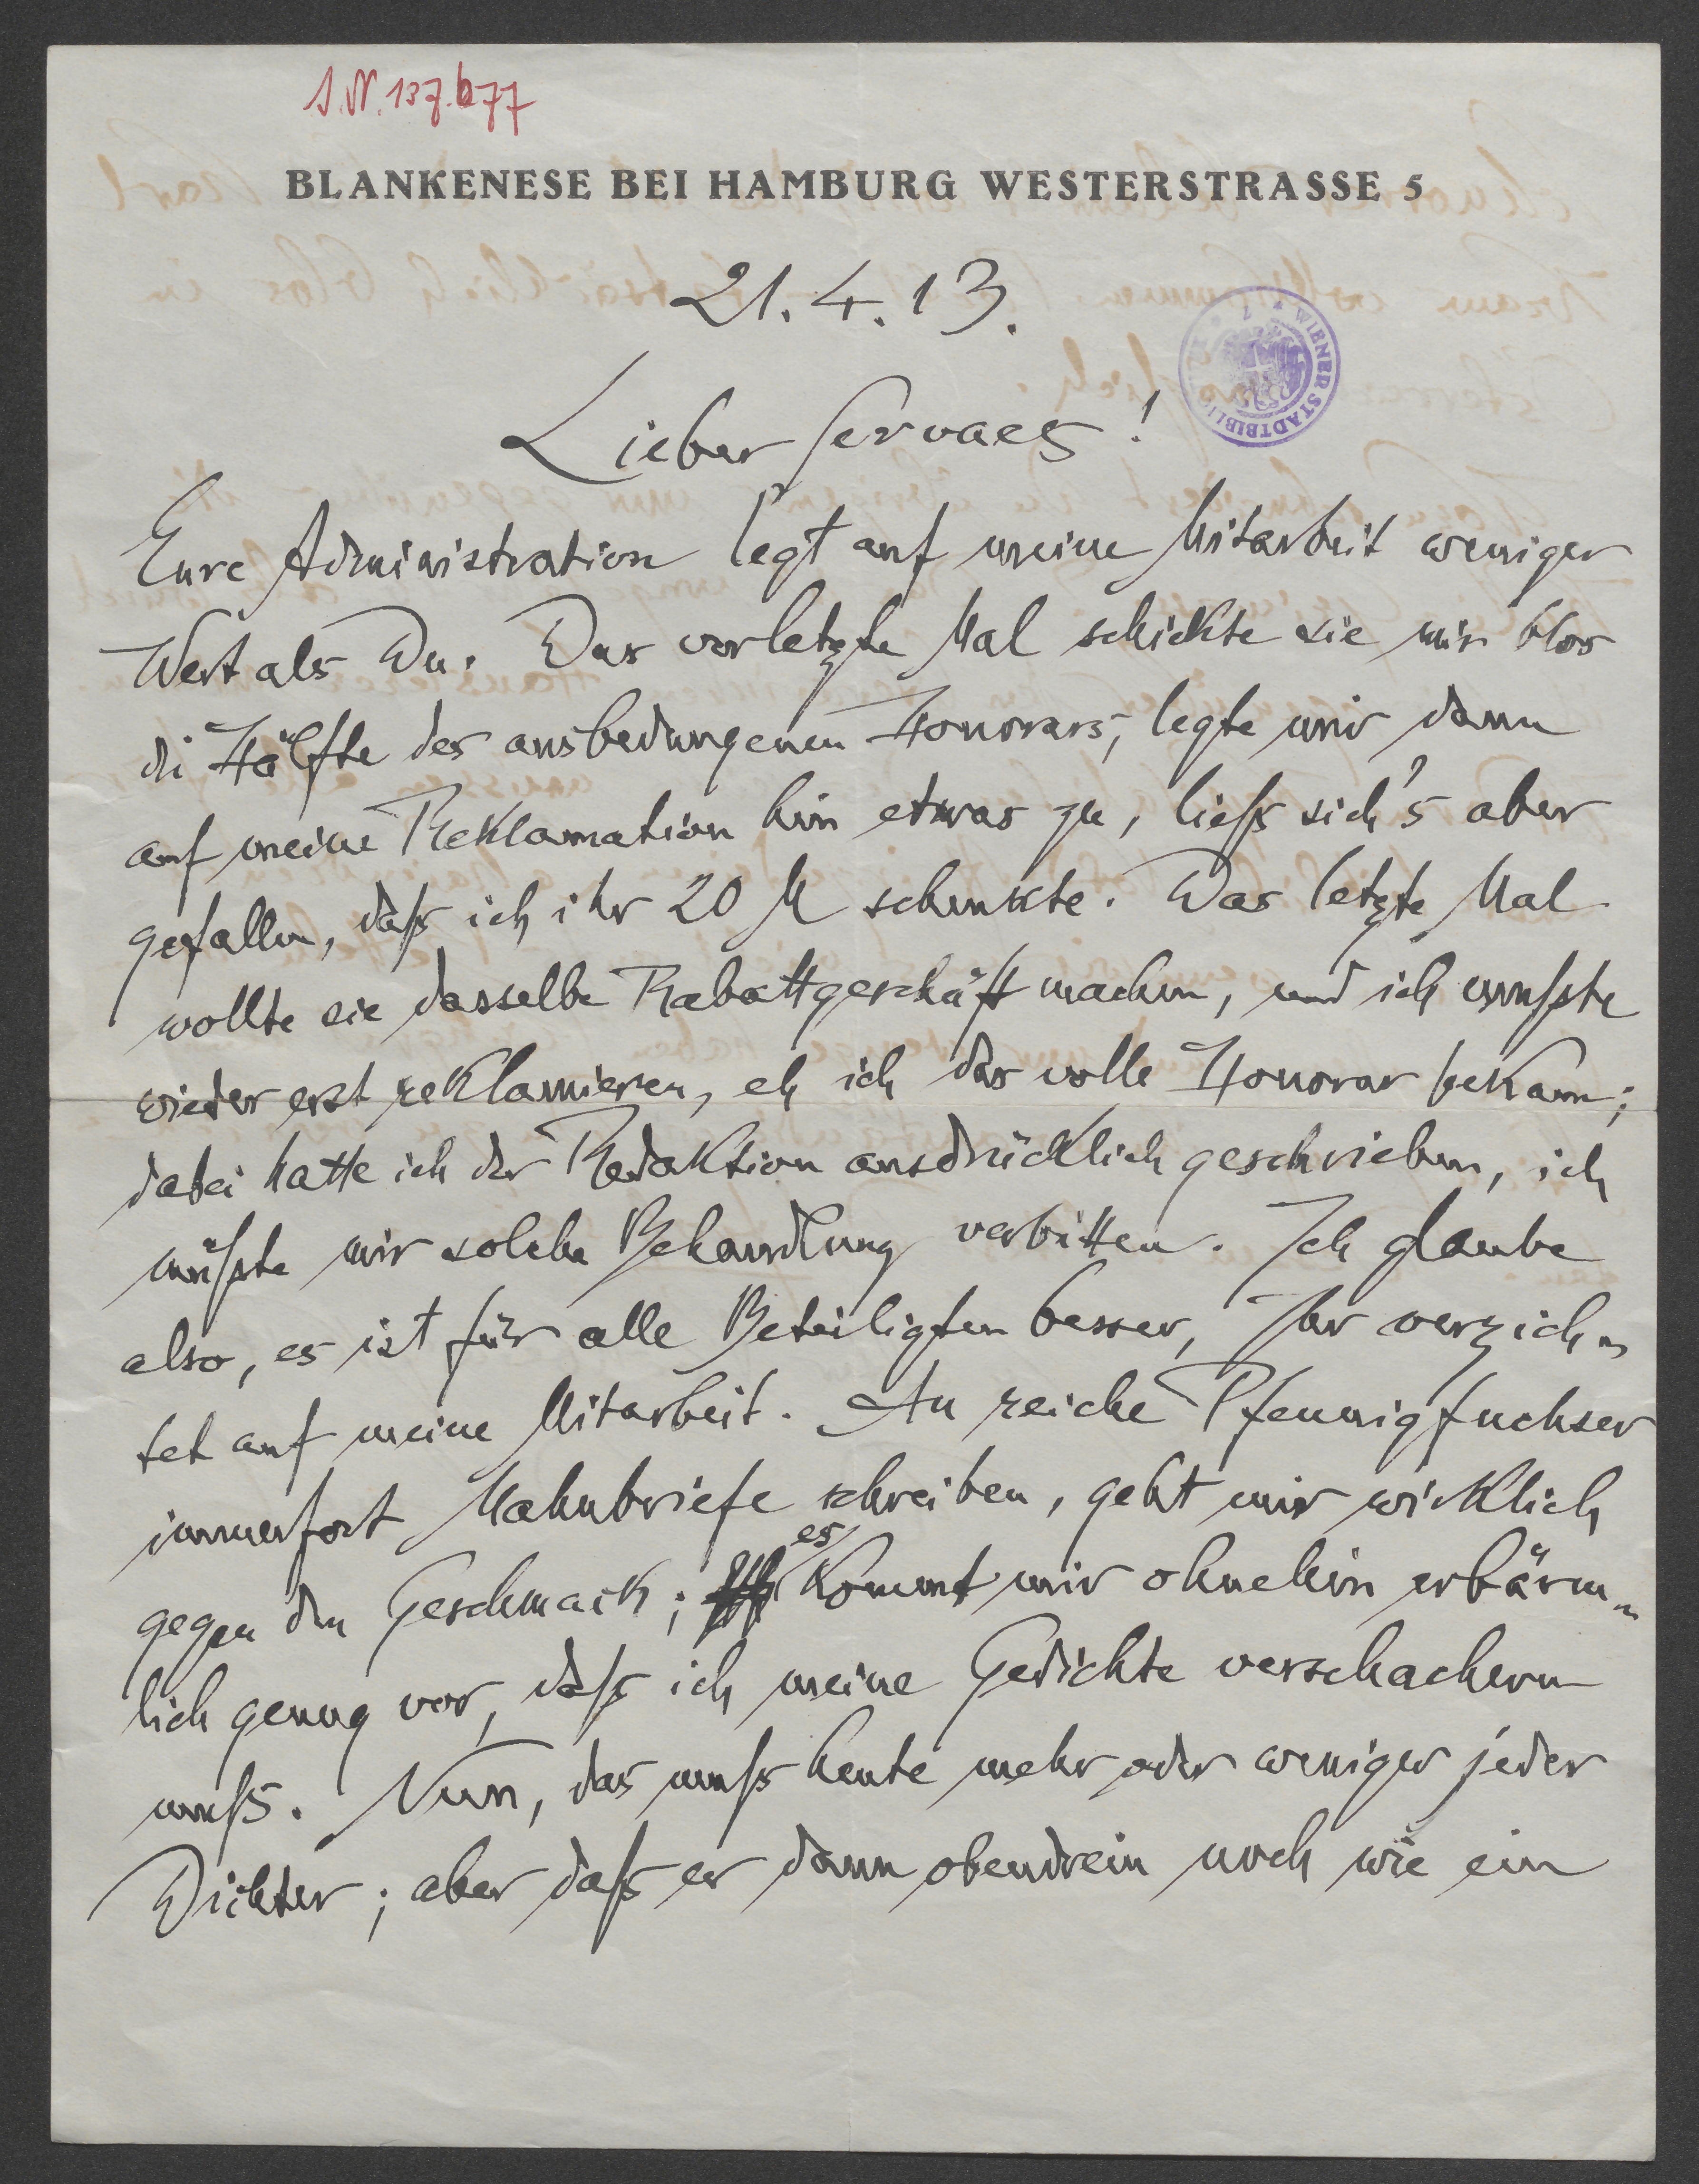 I.N. 137.677
BLANKENESE BEI HAMBURG WESTERSTRASSE 5
21.4.13.
WIENER STADTBIBLIOTHEK
Lieber Servaes!
Eure Administration legt auf meine Mitarbeit weniger
Wert als Du. Das vorletzte Mal schickte sie mir blos
di Hälfte des ausbedungenen Honorars, legte mir dann
auf meine Reklamation hin etwas zu, ließ sich's aber
gefallen, daß ich ihr 20 M schenkte. Das letzte Mal
wollte sie dasselbe Rabattgeschäft machen, und ich mußte
wieder erst reklamieren, eh ich das volle Honorar bekam;
dabei hatte ich der Redaktion ausdrücklich geschrieben, ich
müßte mir solche Behandlung verbitten. Ich glaube
also, es ist für alle Beteiligten besser, Ihr verzich-
tet auf meine Mitarbeit. An reiche Pfennigfuchser
immerfort Mahnbriefe schreiben, geht mir wirklich
gegen den Geschmack; es kommt mir ohnehin erbärm-
lich genug vor, daß ich meine Gedichte verschachern
muß. Nun, das muß heute mehr oder weniger jeder
Dichter; aber daß er dann obendrein noch wie ein